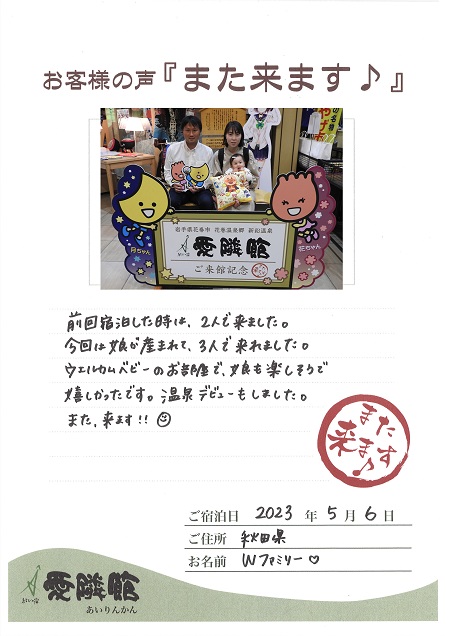 お客様の声『また来ます♪』
月ちゃん
花ちゃん
岩手県花巻市 花巻温泉郷 新鉛温泉
愛隣館
ご来館記念
前回宿泊した時は、2人で来ました。
今回は娘が産まれて、3人で来れました。
ウエルカムベビーのお部屋で、娘も楽しそうで
嬉しかったです。温泉デビューもしました。
また、来ます!!
また
来ます♪
ご宿泊日 2023 年 5 月 6 日
ご住所 秋田県
お名前 Wファミリー♡
結いの宿
愛隣館
あいりんかん